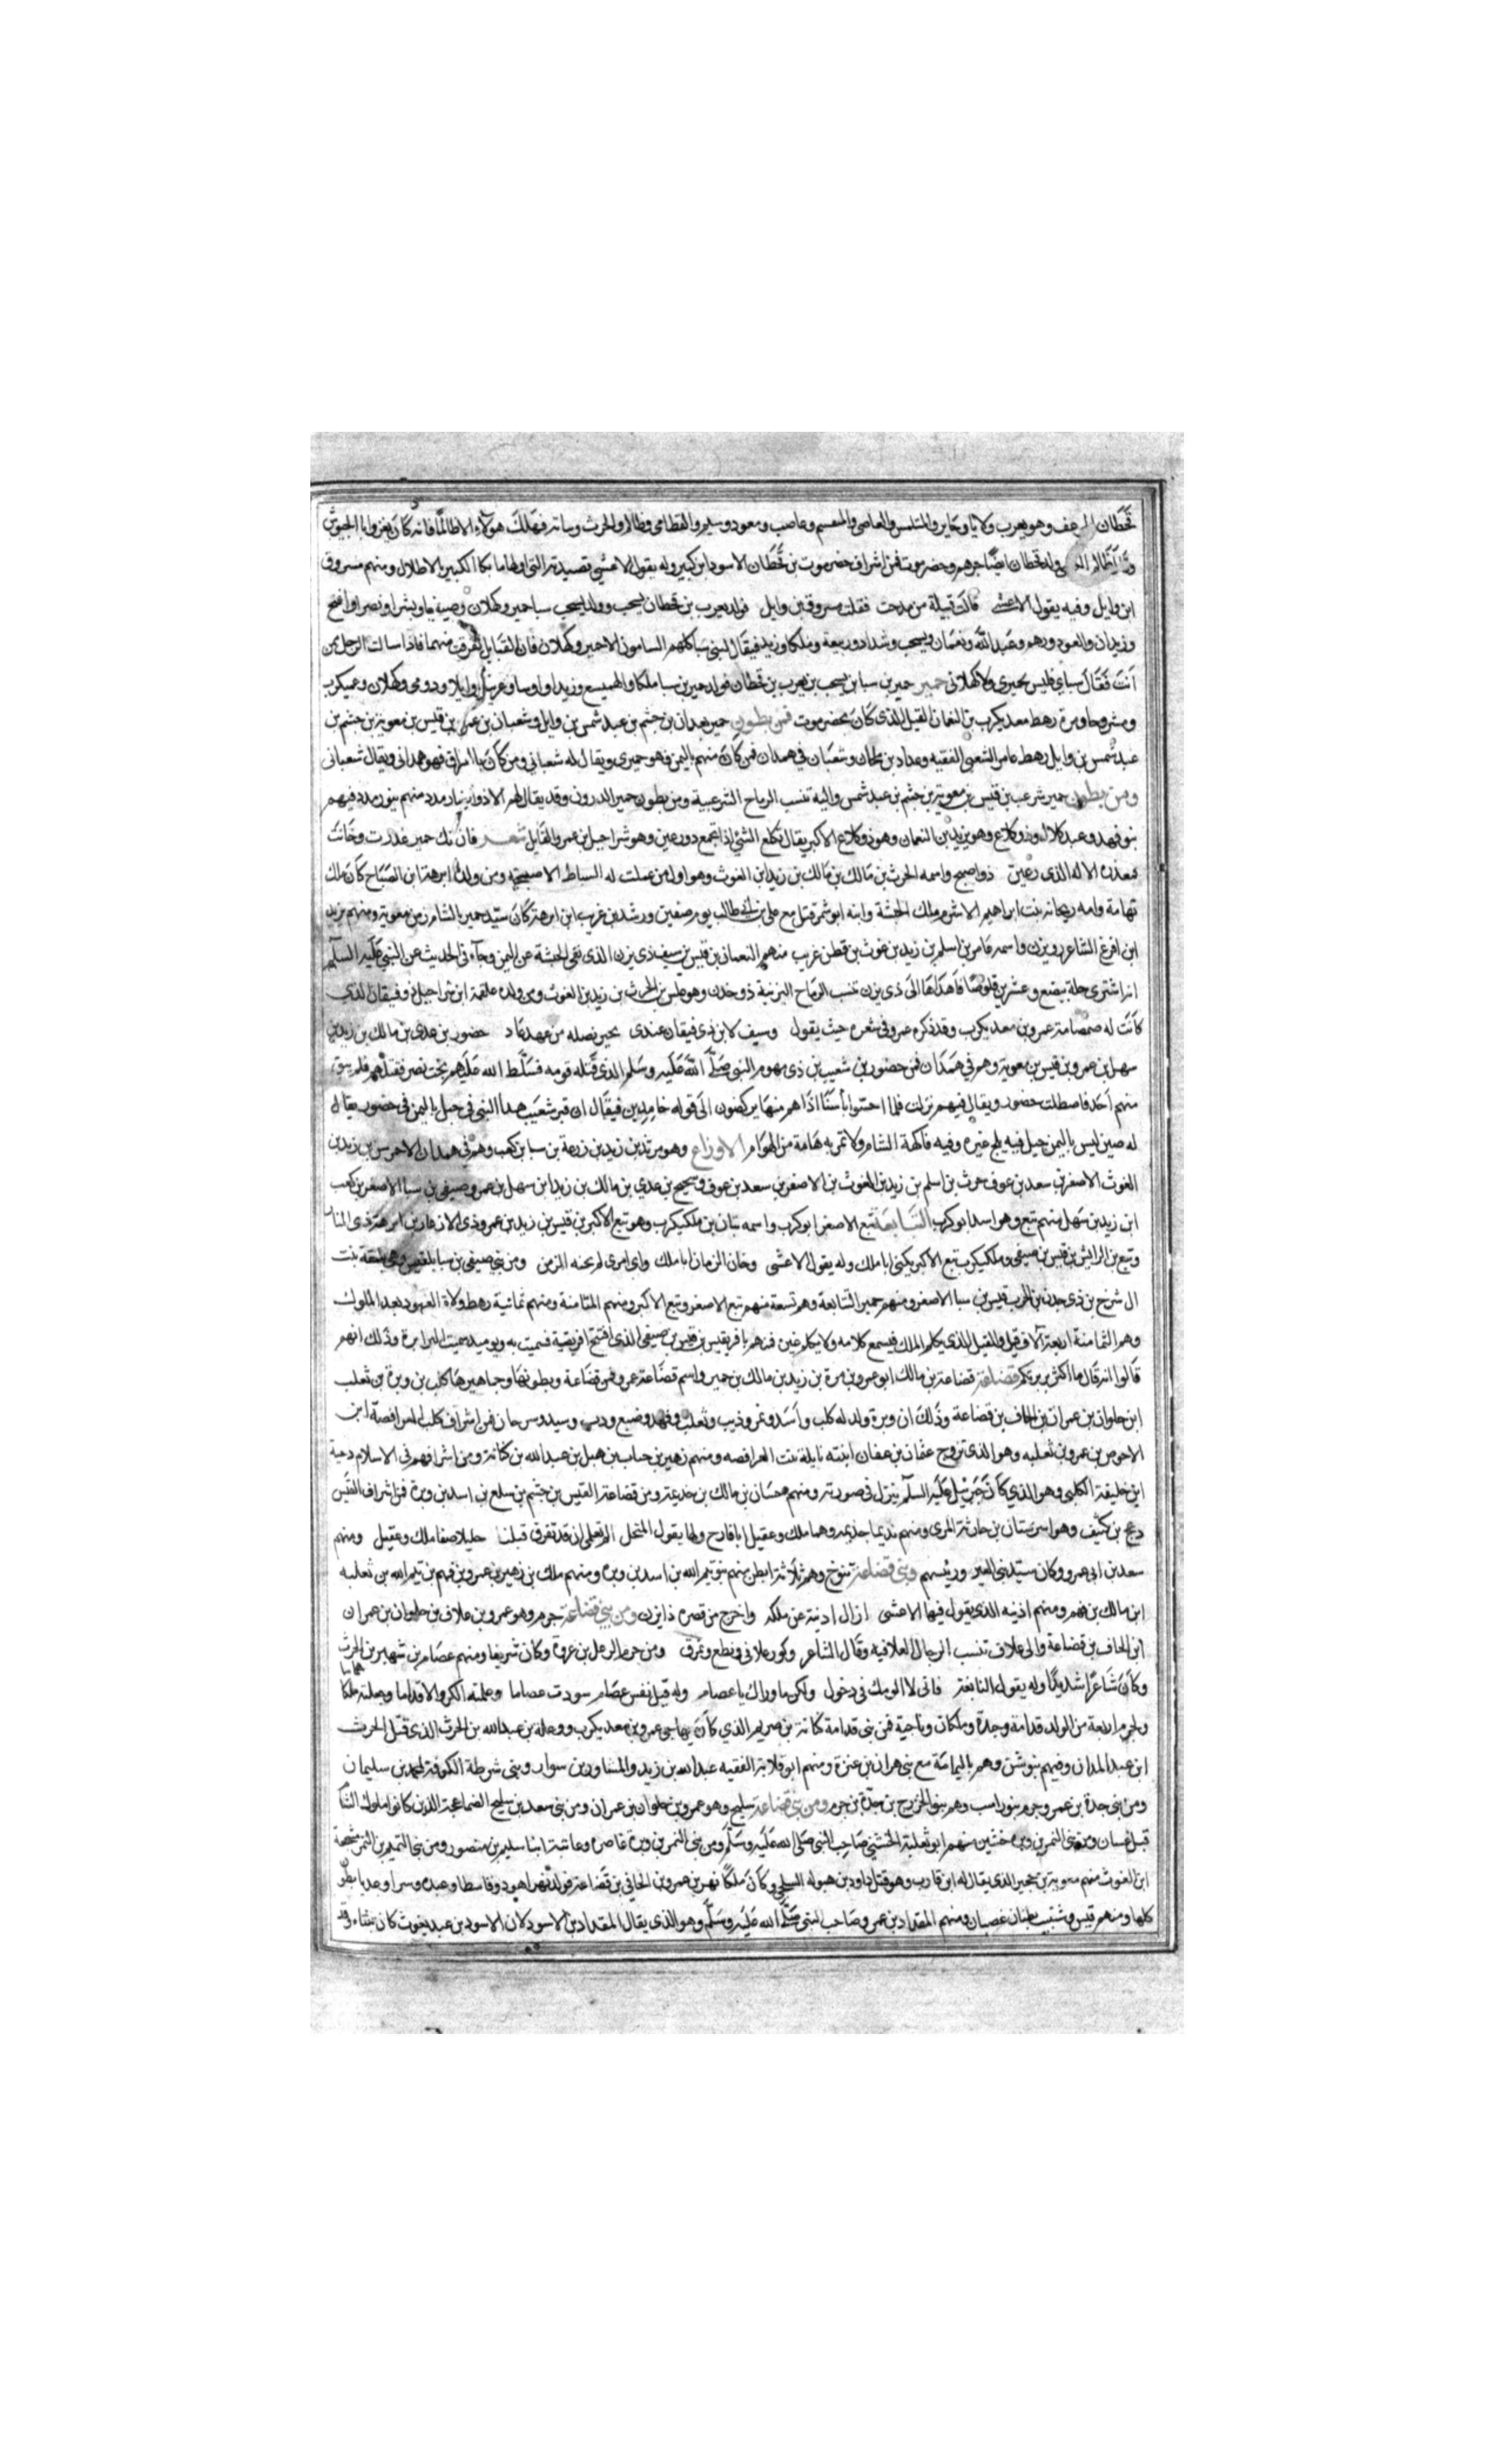 قحطان المرعف وهو يعرب ولايا وجابر والمتلمس والعاصى والمتغشم وعاصب ومعوذ وسليم والقطامى وظالم والحرث ونباتة فهلك هولاء الا ظالما فانه كان يغزو بالجيوش
ولد قحطان ايضا جرهم وحضرموت فمن اشراف حضرموت بن قحطان الاسود ابن كبير وله يقول الاعشى قصيدته التى اولها ما بكا الكبير بالاطلال ومنهم مسروق
ابن وايل وفيه يقول الاعشى قالت قبيلة من مدحت فقلت مسروق بن وايل فولد يعرب بن قحطان يشجب وولد يشجب سبا حمير وكهلان وصيفيا وبشرا ونصرا وافلح
وزيدان والعود ورهم وعبد الله ونعمان ويشجب وشداد وربيعة وملكا وزيد فيقال لبنى سبا كلهم السبايون الا حمير وكهلان فان القبايل تفرقت منهما فاذا سالت الرجل من
انت فقال سباى فليس بحميرى ولا كهلانى حمير حمير بن سبا بن يشجب بن يعرب بن قحطان فولد حمير بن سبا ملكا والهميسع وزيدا واوسا وعريبا ووايلا ودومى وكهلان وعميكرب
ومشروحا ومرة رهط معد يكرب بن النعمان القيل الذى كان بحضرموت فمن بطون حمير معدان بن جشم بن عبد شمس بن وايل وشعبان بن عمرو بن قيس بن معوية بن جشم بن
عبد شمس بن وايل رهط عامر الشعبى الفقيه وعداد بن ملحان وشعبان فى همدان فمن كان منهم باليمن فهو حميرى ويقال له شعبانى ومن كان بالعراق فهو همدانى ويقال شعبانى
ومن بطون حمير شرعب بن قيس بن معوية بن جشم بن عبد شمس واليه تنسب الرماح الشرعبية ومن بطون حمير الدرون وقد يقال لهم الاذواء بنادمدد منهم بنو مدد فيهم
بنو فهد وعبد كلال وذو كلاع وهو يزيد بن النعمان وهو ذو كلاع الاكبر يقال تكلع الشئ اذا تجمع دورعين وهو شراحيل بن عمرو القايل شعر فان تك حمير غدرت وخانت
فمعذرة الاله لذى رعين ذو اصبح واسمه الحرث بن مالك بن مالك بن زيد ابن الغوث وهو اول من عملت له السياط الاصبحية ومن ولده ابرهة ابن الصباح كان ملك
تهامة وامه ريحانة بنت ابراهيم الاشرم ملك الحبشة وابنه ابو شمر قتل مع على بن ابى طالب يوم صفين ورشد بن عريب ابن ابرهة كان سيد حمير بالشام زمن معوية ومنهم يزيد
ابن افرغ الشاعر ويزن واسمه عامر بن اسلم بن زيد بن غوث بن قطن عريب منهم النعمان بن قيس بن سيف ذى يزن الذى نفى الحبشة عن اليمن وجاء فى الحديث عن النبى عليه السلام
انه اشترى حلة ببضع وعشرين قلوصا فاهداها الى ذى يزن تنسب الرماح اليزنية ذو جدن وهو علس بن الحرث بن زيد بن الغوث ومن ولده علقمة ابن شراحيل ذو فيقان الذى
كانت له صمصامة عمرو بن معد يكرب وقد ذكره عمرو فى شعره حيث يقول وسيف لابن ذى فيقان عندى تخير نصله من عهد عاد حضور بن عدى بن مالك بن زيد بن
سهل بن عمرو بن قيس بن معوية وهم فى همدان فمن حضور بن شعيب بن ذى مهوم النبى صلى الله عليه وسلم الذى قتله قومه فسلط الله عليهم بخت نصر فقتلهم فلم يبق
منهم احد فاصطلت حضور ويقال فيهم نزلت فلما احسوا بأسنا اذا هم منها يركضون الى قوله خامدين فيقال ان قبر شعيب هذا النبى فى جبل باليمن فى حضور يقال
له صين ليس باليمن جبل فيه يلج غيره وفيه فاكهة الشام ولا تمر به هامة من الهوام الاوزاع وهو مرثد بن زيد بن زرعة بن سبا بن كعب وهم فى همدان الاحمرس بن زيد بن
الغوث الاصغر بن سعد بن عوف حرث بن اسلم بن زيد بن الغوث بن الاصغر بن سعد بن عوف وسحيح بن عدى بن مالك بن زيد ابن سهل بن عمرو صيفى بن سبا الاصغر بن كعب
ابن زيد بن سهل منهم تبع وهو اسد ابو كرب التبابعة تبع الاصغر ابو كرب واسمه تبان بن ملكيكرب وهو تبع الاكبر بن قيس بن زيد بن عمرو ذى الاذعار بن ابرهة ذى المنار
وتبع بن الرايش بن قيس بن صيفى وملكيكرب تبع الاكبر يكنى ابا ملك وله يقول الاعشى وخان الزمان ابا ملك واى امرى لم يخنه الزمن ومن بنى صيفى بن سبا بلقيس وهى بلقة بنت
ال شرح بن ذى جدن بن الحرث قيس بن سبا الاصغر ومنهم حمير التبابعة وهم تسعة منهم تبع الاصغر وتبع الاكبر ومنهم المثامنة ومنهم ثمانية رهط ولاة العهود بعد الملوك
وهم الثمامنة اربعة آلاف قيل والقيل الذى يكلم الملك فيسمع كلامه ولا يكلم غيره فمنهم بافريقيس بن قيس بن صيفى الذى افتتح افريقية فسميت به ويوميذ سميت البرابرة وذلك انهم
قالوا انه قال ما اكثر بربرتكم قضاعة قضاعة بن مالك ابو عمرو بن مرة بن زيد بن مالك بن حمير واسم قضاعة عمرو فمن قضاعة وبطونها وجماهيرها كلب بن وبرة بن ثعلب
ابن حلوان بن عمران بن الحاف بن قضاعة وذلك ان وبرة ولد له كلب واسد ونمر وذيب وثعلب وفهد وضبع ودب وسيد وسرحان فمن اشراف كلب الفرافصة ابن
الاحوص بن عمرو بن ثعلبه وهو الذى تزوج عثمان بن عفان ابنته نايلة بنت الفرافصه ومنهم زهير بن جناب بن هبل بن عبد الله بن كنانة ومن اشرافهم فى الاسلام دحية
ابن خليفة الكلبى وهو الذى كان جبرئيل عليه السلام ينزل فى صورته ومنهم حسان بن مالك بن خديعة ومن قضاعة القيس بن جشم بن سلع بن اسد بن وبرة فمن اشراف القين
دعج بن كثيف وهو اسر سنان بن حارثة المرى ومنهم نديما جذيمه وهما ملك وعقيل ابنا فارح ولها يقول المنخل الم تعلمى ان قد تفرق قبلنا خليلا صفا ملك وعقيل ومنهم
سعد بن ابى عمرو وكان سيد بنى القين ورئيسهم وبنى قضاعة تنوخ وهم ثلاثة ابطن منهم بنو تيم الله بن اسد بن وبره ومنهم ملك بن زهير بن عمرو بن فهم بن تيم الله بن ثعلبه
ابن مالك بن فهم ومنهم اذينه الذى يقول فيها الاعشى ازال اذينة عن ملكه واخرج من قصره ذا يزن ومن بنى قضاعة جرم وهو عمرو بن علاف بن حلوان بن عمران
ابن الحاف بن قضاعة والى علاف تنسب الرحال العلافيه وقال الشاعر وكور علافى وقطع ونمرق ومن جرم الرعل بن عروة وكان شريفا ومنهم عصام بن شهبر بن الحرث
وكان شاعرا شديدا وله يقول النابغة فانى لا الومك فى دخول ولكن ما وراك يا عصام وله قيل نفس عصام سودت عصاما وعلمته الكر والاقداما وجعلته ملكا هماما
ولجرم اربعة من الولد قدامة وجدة وملكان وناجية فمن بنى قدامة كنانة بن صريم الذى كان يهاجى عمرو بن معد يكرب ووعلة بن عبد الله بن الحرث الذى قتل الحرث
ابن عبد المدان وفيهم بنو شن وهم باليمامة مع بنى هزان بن عنزة ومنهم ابو قلابة الفقيه عبد الله بن زيد والمساور بن سوار وبنى شرطة الكوفة لمحمد بن سليمان
ومن بنى جدة بن عمرو جرم بنو راسب وهم بنو الخزرج بن جدة بن جرم ومن بنى قضاعة سليح وهو عمرو بن حلوان بن عمران ومن بنى سعد بن سليح الضجاعمة الذين كانوا ملوك الشام
قبل غسان ومن بنى النمر بن وبره خشين منهم ابو ثعلبة الخشنى صاحب النبى صلى الله عليه وسلم ومن بنى النمر بن وبرة غاضره وعاتبة ابنا سليم بن منصور ومن بنى النمر
ابن الغوث منهم معوية بن حجير الذى يقال له ابن قارب وهو قتل داود بن هبوله السليحى وكان ملكا نهر بن عمرو بن الحافى بن قضاعة فولد
كلها ومنهم قيس وشبيب بطنان عصبان ومنهم المقداد بن عمرو صاحب النبى صلى الله عليه وسلم وهو الذى يقال المقداد بن الاسود لان الاسود بن عبد يغوث كان تبناه وقد